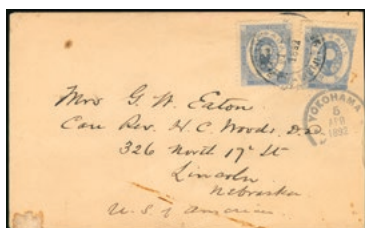 Mrs G. W. Eaton
Care Rev. H. C. Woods, D.D.
326 North 17" St
Lincoln
Nebraska
U.S. of America
YOKOHAMA
6
1892